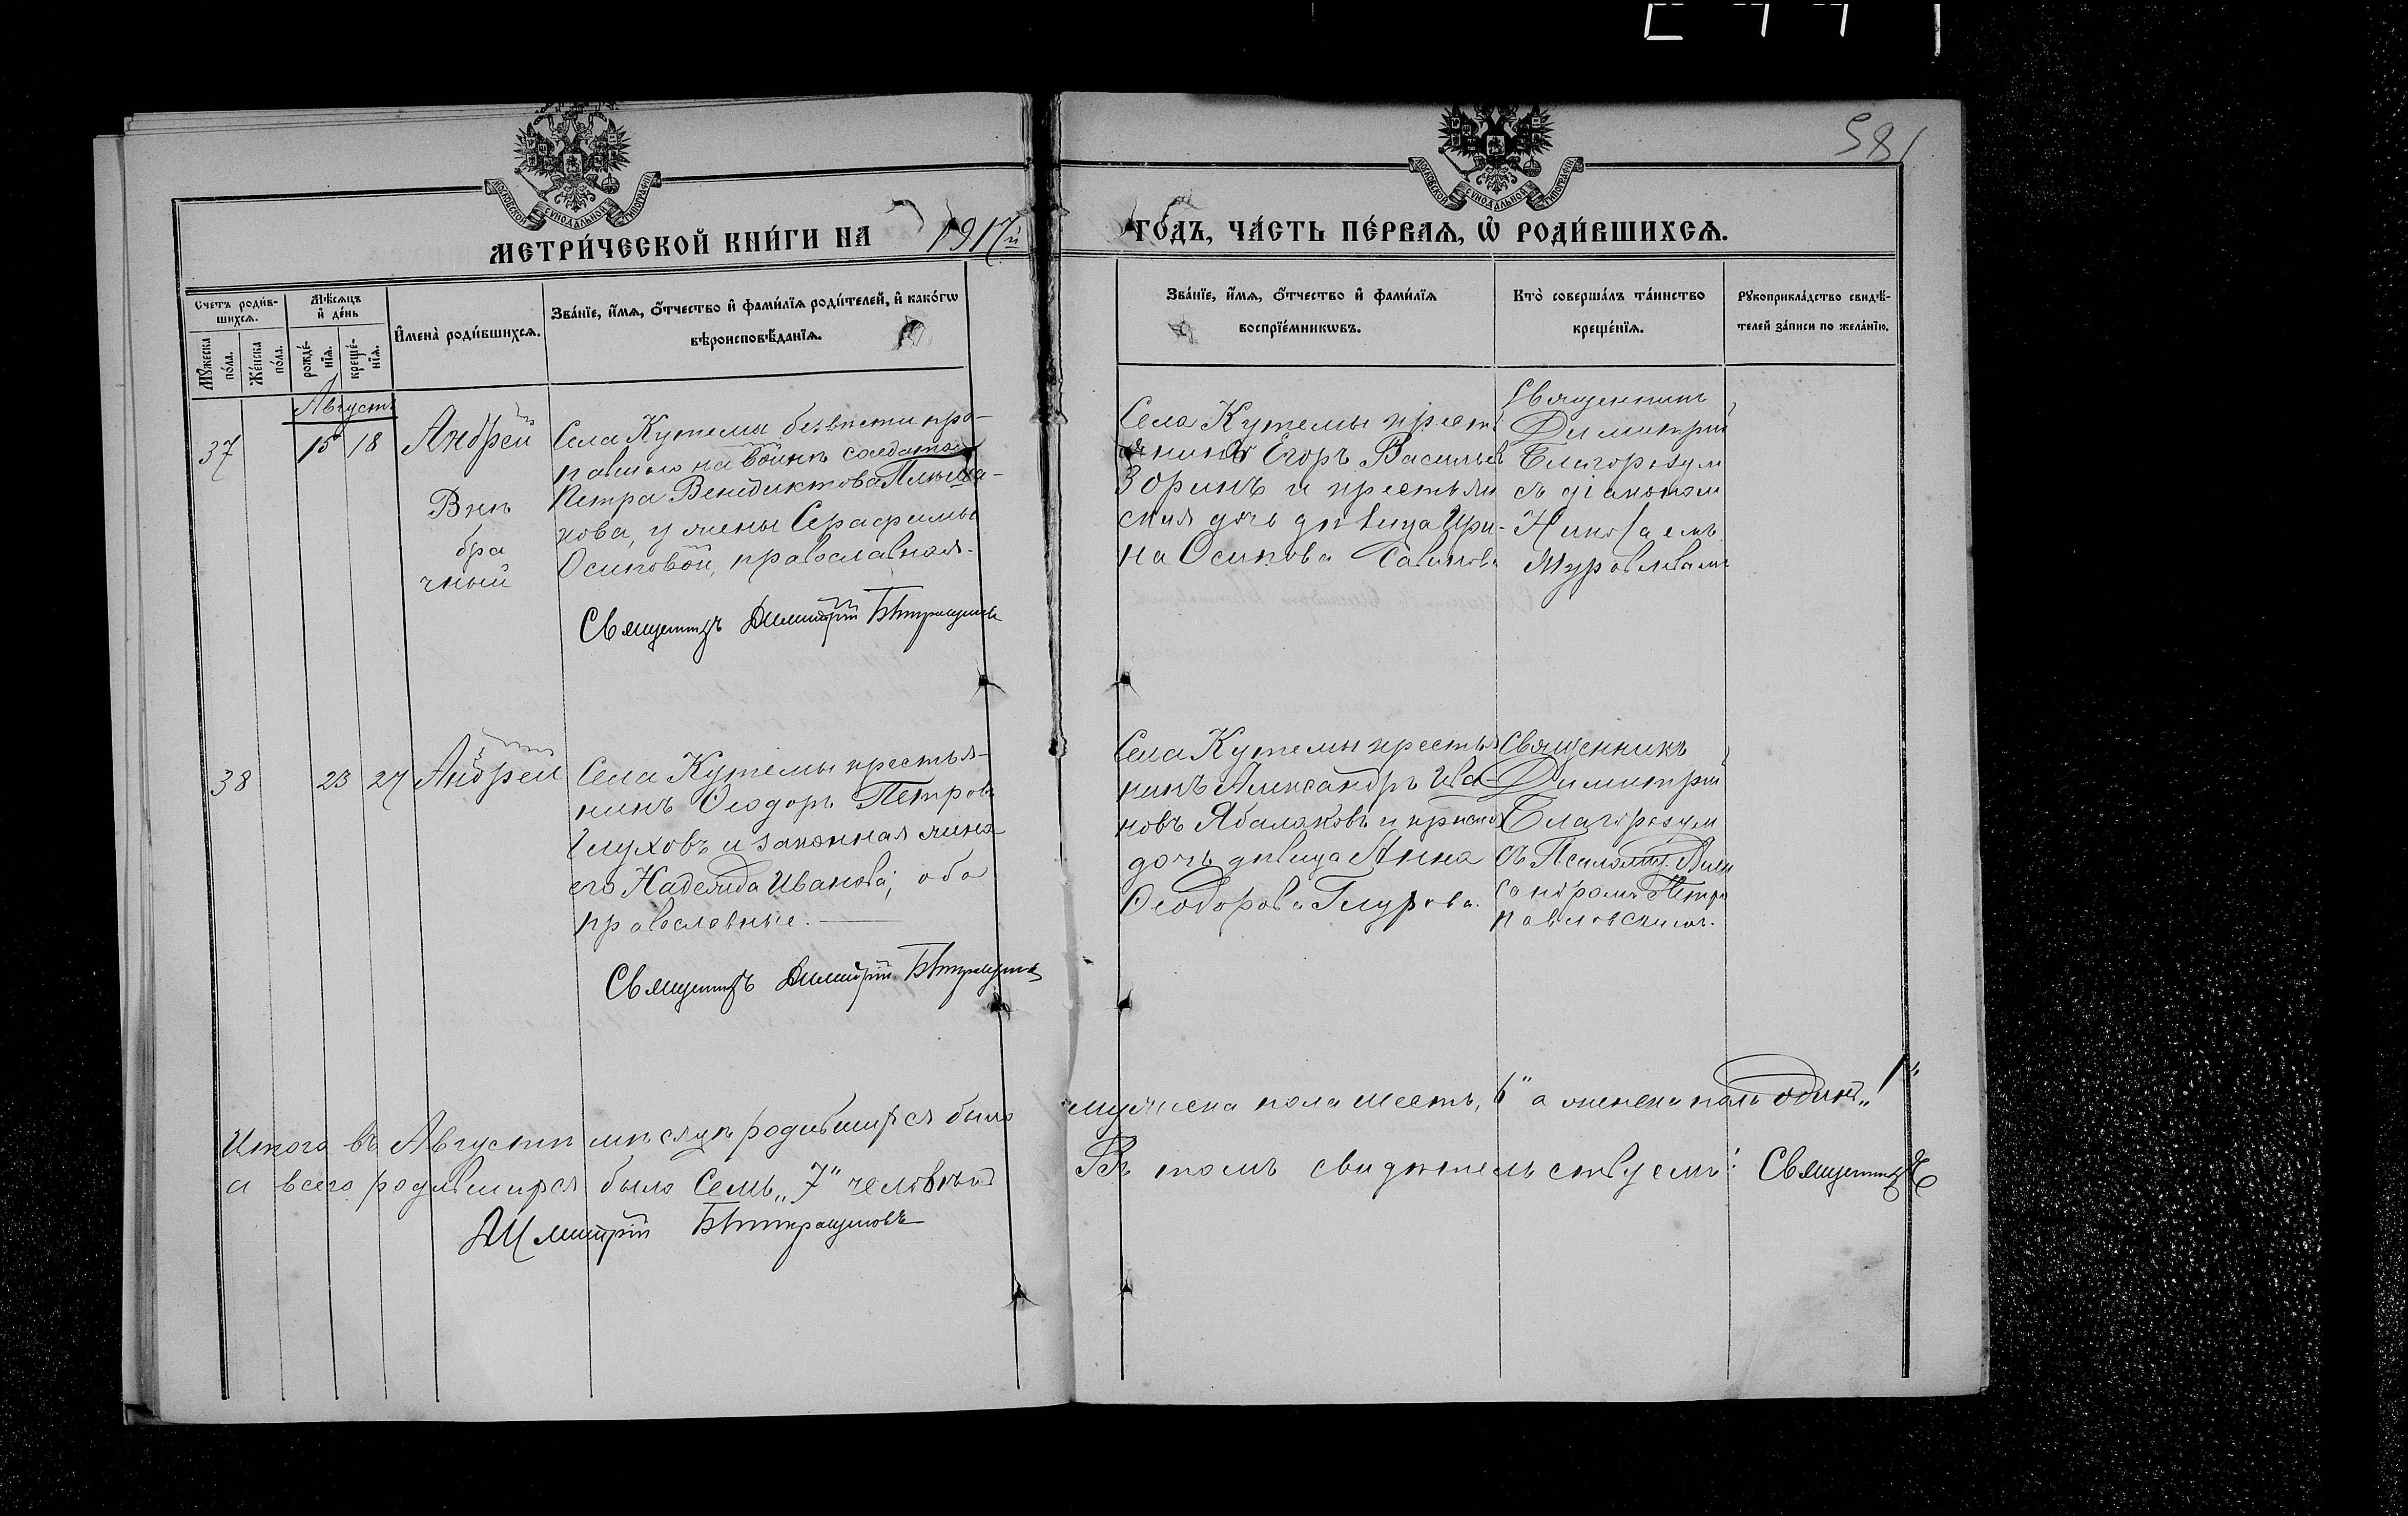 581
МОСКОВСКОЙ СУНОДАЛЬНОЙ ТИПОГРАФІИ
МОСКОВСКОЙ СУНОДАЛЬНОЙ ТИПОГРАФІИ
МЕТРИ́ЧЕСКОЙ КНИ́ГИ НА 1917й
ГО́ДЪ, ЧА́СТЬ ПЕ́РВАѦ, Ѡ РОДИ́ВШИХСѦ.
Счетъ роди́в-
шихсѧ.
Мѣ́сѧцъ
и де́нь
Мꙋ́жеска
по́ла.
Же́нска
по́ла.
рожде́-
нїѧ.
креще́-
нїѧ.
Имена̀ роди́вшихсѧ.
Зва́нїе, и́мѧ, ѻ́тчество и фами́лїѧ роди́телей, и како́гѡ
вѣроисповѣ́данїѧ.
Зва́нїе, и́мѧ, ѻ́тчество и фами́лїѧ
воспрїе́мникѡвъ.
Кто̀ соверша́лъ та́инство
креще́нїѧ.
Рꙋкоприкла́дство свидѣ́-
телей за́писи по жела́нїю.
Августъ
37
15 18
Андрей
Внѣ
бра
чный
Села Кутемы безвѣсти про-
павшаго на войнѣ солдата
Петра Венедиктова
кова, у жены Серафимы
Осиповой, православная.
Священникъ Димитрій
Села Кутемы кресть
янинъ Егоръ Васильев
Зоринъ и крестьян
ская дочь дѣвица Ири-
на Осипова Савинова
Священникъ
Димитрій
Благоразум
съ діакономъ
Николаемъ
Муравлевымъ
38
23 27
Андрей
Села Кутемы крестья-
нинъ Ѳеодоръ Петровъ
Глуховъ и законная жена
его Надежда Иванова; оба
православные.
Священникъ Димитрій
Села Кутемы крестья
нинъ Александръ Ива-
новъ Ябалаковъ и крестья
дочь дѣвица Анна
Ѳеодорова
Священникъ
Димитрій
Благоразум
съ Псаломщ.
Петро
павловскимъ.
Итого въ Августѣ мѣсяцѣ родившихся было мужеска пола шесть, 6" а женска пола одинъ „1"
а всего родившихся было Семь „7" человѣкъ
Въ томъ свидѣтельствуемъ: Священникъ
Димитрій